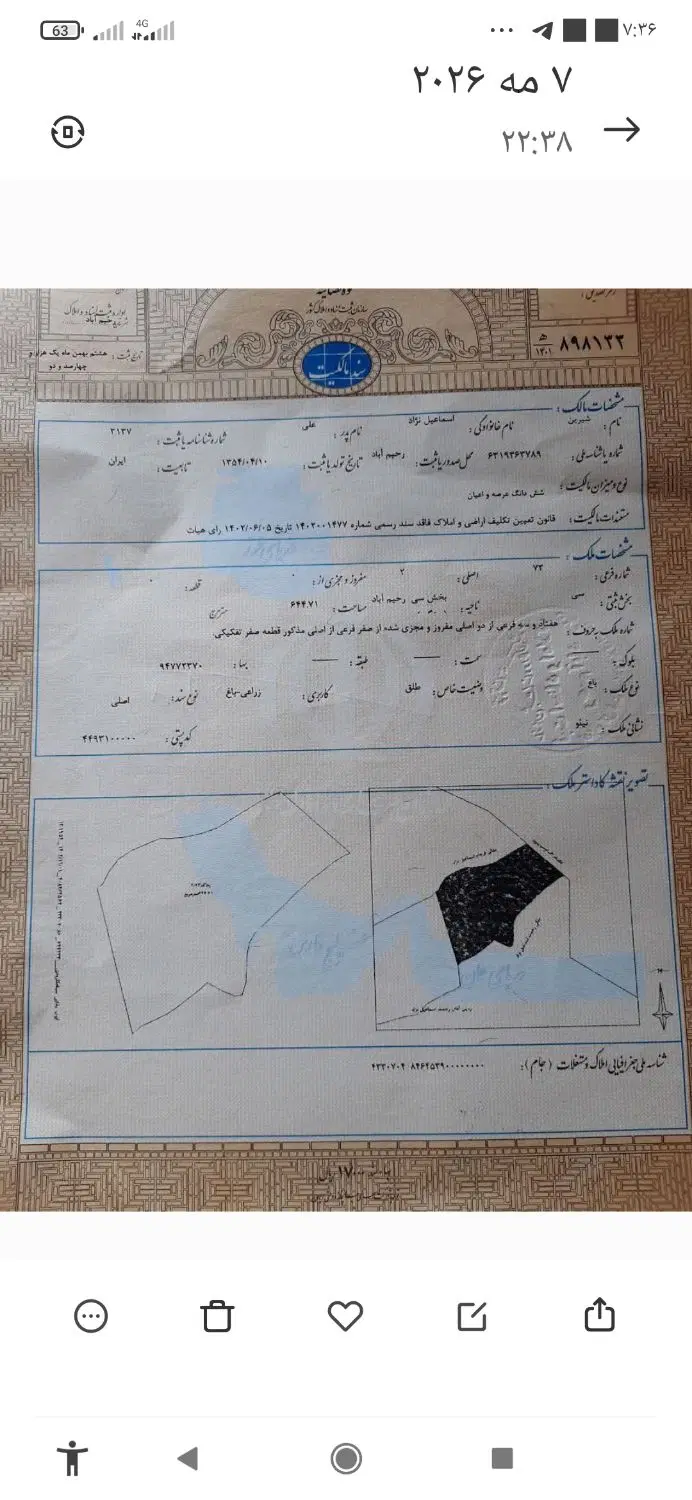 ۷:۳۶
4G
63
۷ مه ۲۰۲۶
۲۲:۳۸
سازمان ثبت اسناد و املاک کشور
اداره ثبت اسناد و املاک
رحیم آباد
۸۹۸۱۳۳
۱۴۰۱
سند مالکیت
تاریخ ثبت : هشتم بهمن ماه یک هزار و
چهارصد و دو
مشخصات مالک :
نام : شیرین نام خانوادگی : اسماعیل نژاد نام پدر : علی شماره شناسنامه یا ثبت : ۳۱۳۷
شماره یا شناسه ملی : ۶۳۱۹۳۶۳۷۸۹ محل صدور یا ثبت : رحیم آباد تاریخ تولد یا ثبت : ۱۳۵۴/۰۴/۱۰ تابعیت : ایران
نوع و میزان مالکیت : شش دانگ عرصه و اعیان
مستندات مالکیت : قانون تعیین تکلیف اراضی و املاک فاقد سند رسمی شماره ۱۴۰۲۰۰۱۴۷۷ تاریخ ۱۴۰۲/۰۶/۰۵ رای هیات
مشخصات ملک :
شماره فرعی : ۷۳ اصلی : ۲ مفروز و مجزی از : ۰ قطعه : ۰
بخش ثبتی : سی ناحیه : بخش سی رحیم آباد مساحت : ۶۴۴.۷۱ مترمربع
شماره ملک به حروف : هفتاد و سه فرعی از دو اصلی مفروز و مجزی شده از صفر فرعی از اصلی مذکور قطعه صفر تفکیکی
بلوک : سمت : طبقه : بها : ۹۴۷۷۲۳۷۰
نوع ملک : باغ وضعیت خاص : طلق کاربری : زراعی-باغ نوع سند : اصلی
نشانی ملک : نیلو کدپستی : ۴۴۹۳۱۰۰۰۰۰
تصویر نقشه کاداستر ملک :
شناسه ملی جغرافیایی املاک و مستغلات (جام) : ۴۳۳۰۷۰۴ ۸۴۶۴۵۳۹۰۰۰۰۰۰۰۰